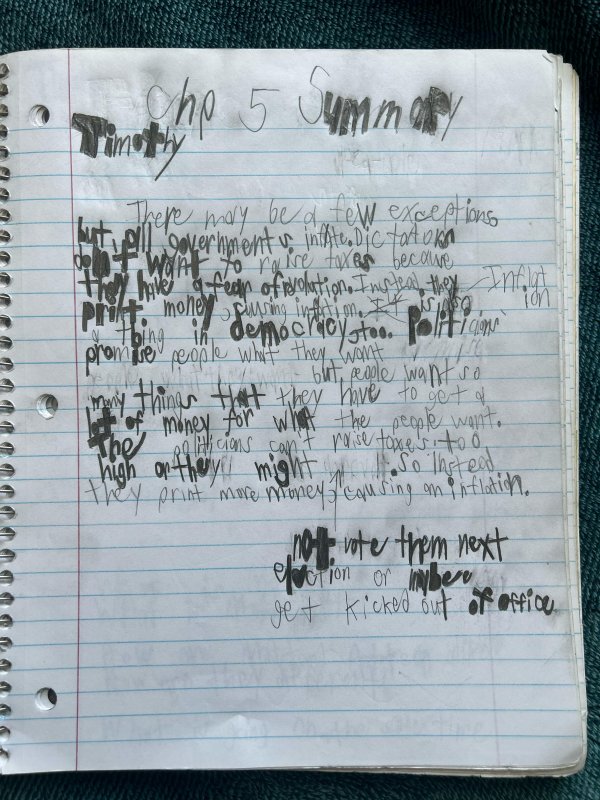 Chp 5 Summary
Timothy
There may be a few exceptions
but all governments inflate. Dictators
don't want to raise taxes because
they have a fear of revolution. Instead they
Inflation
print money, causing inflation. It is also
a thing in democracy, too. Politicians
promise people what they want
but people want so
many things that they have to get a
lot of money for what the people want.
The politicians can't raise taxes too
high or they might . So instead
they print more money, causing an inflation.
not vote them next
election or maybe
get kicked out of office